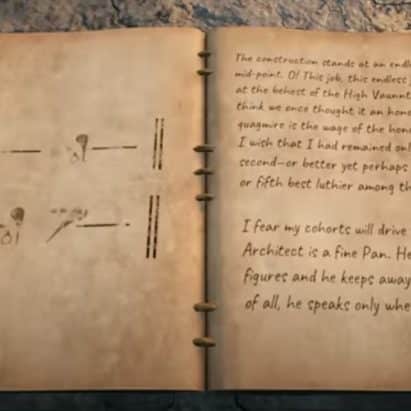 The construction stands at an
mid-point. O! This job, this endless
at the behest of the High
think we once thought it an
quagmire is the wage of the
I wish that I had remained
second—or better yet perhaps
or fifth best luthier among
I fear my cohorts will drive
Architect is a fine Pan.
figures and he keeps away
of all, he speaks only